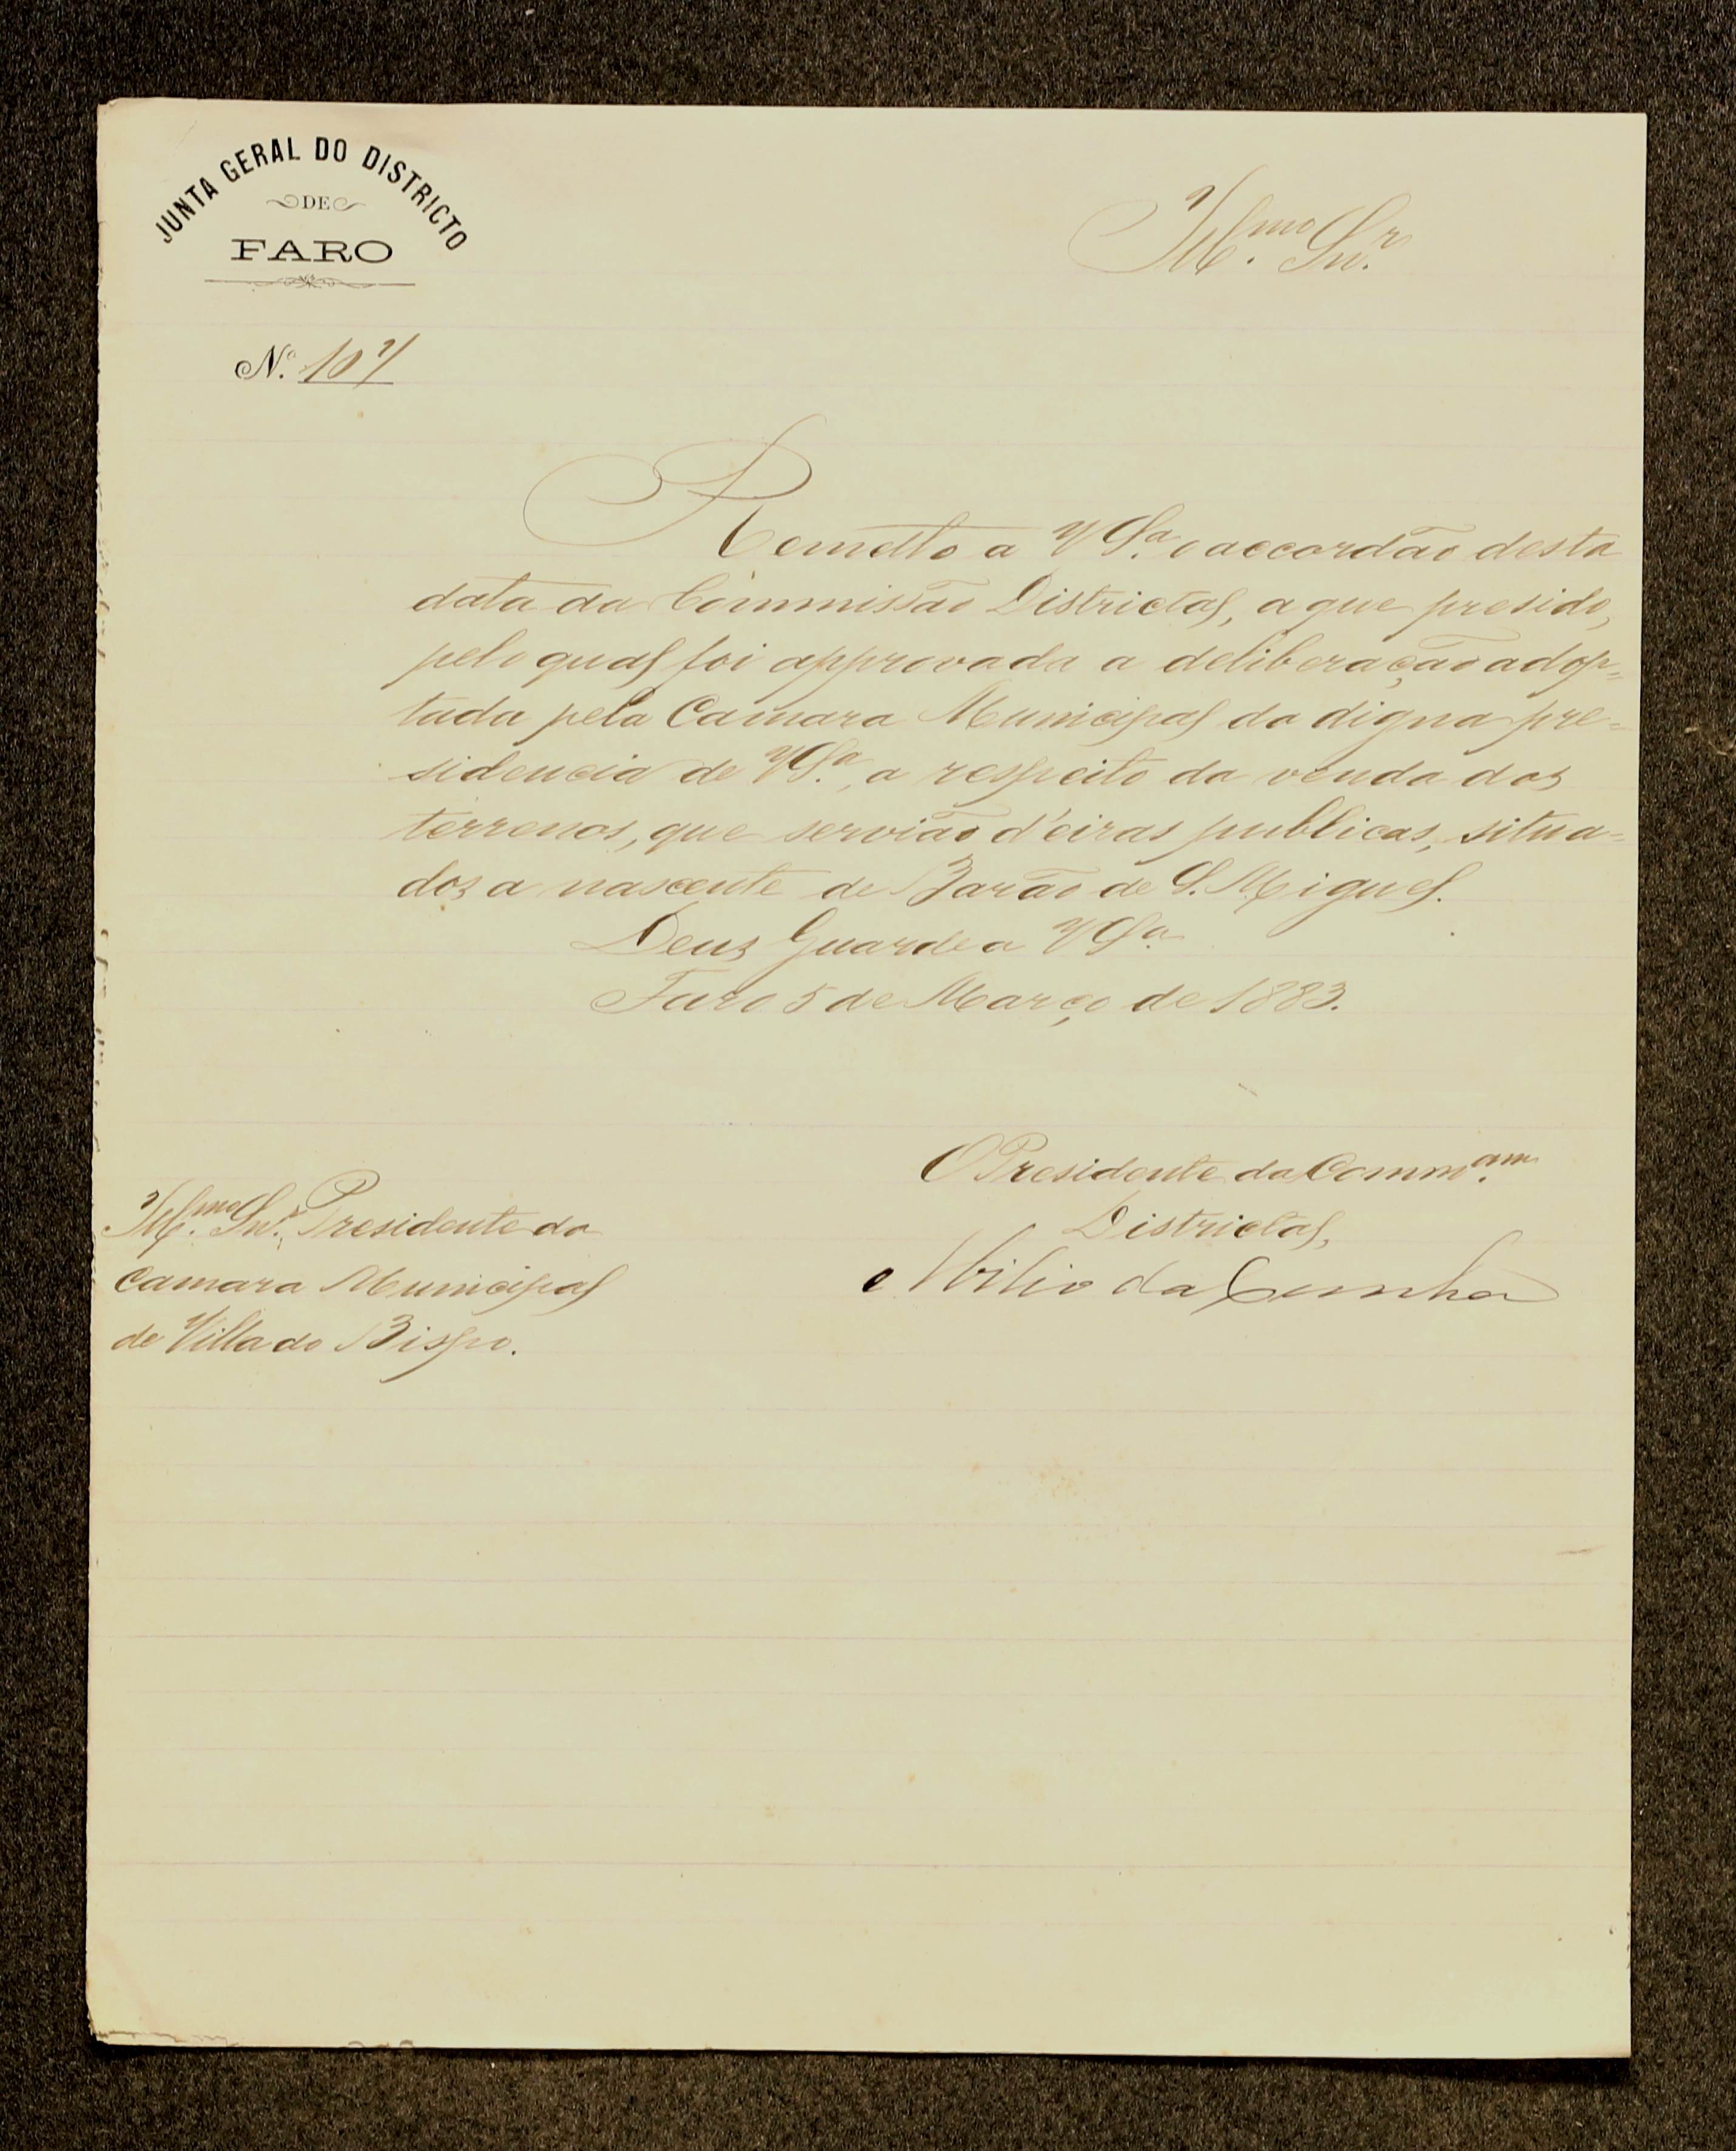 JUNTA GERAL DO DISTRICTO
DE
FARO
Ill.mo Snr.
N.º 107
Remetto a V S.ª o accordão desta
data da Commissão Districtal, a que presido,
pelo qual foi approvada a deliberação adop=
tada pela Camara Municipal da digna pre=
sidencia de V S.ª, a respeito da venda dos
terrenos, que servião d'eiras publicas, situa=
dos a nascente de Barão de S. Miguel.
Deus Guarde a V S.ª
Faro 5 de Março de 1883.
O Presidente da Comm.am
Districtal,
Abilio da Cunha
Ill.mo Snr. Presidente da
Camara Municipal
de Villa do Bispo.